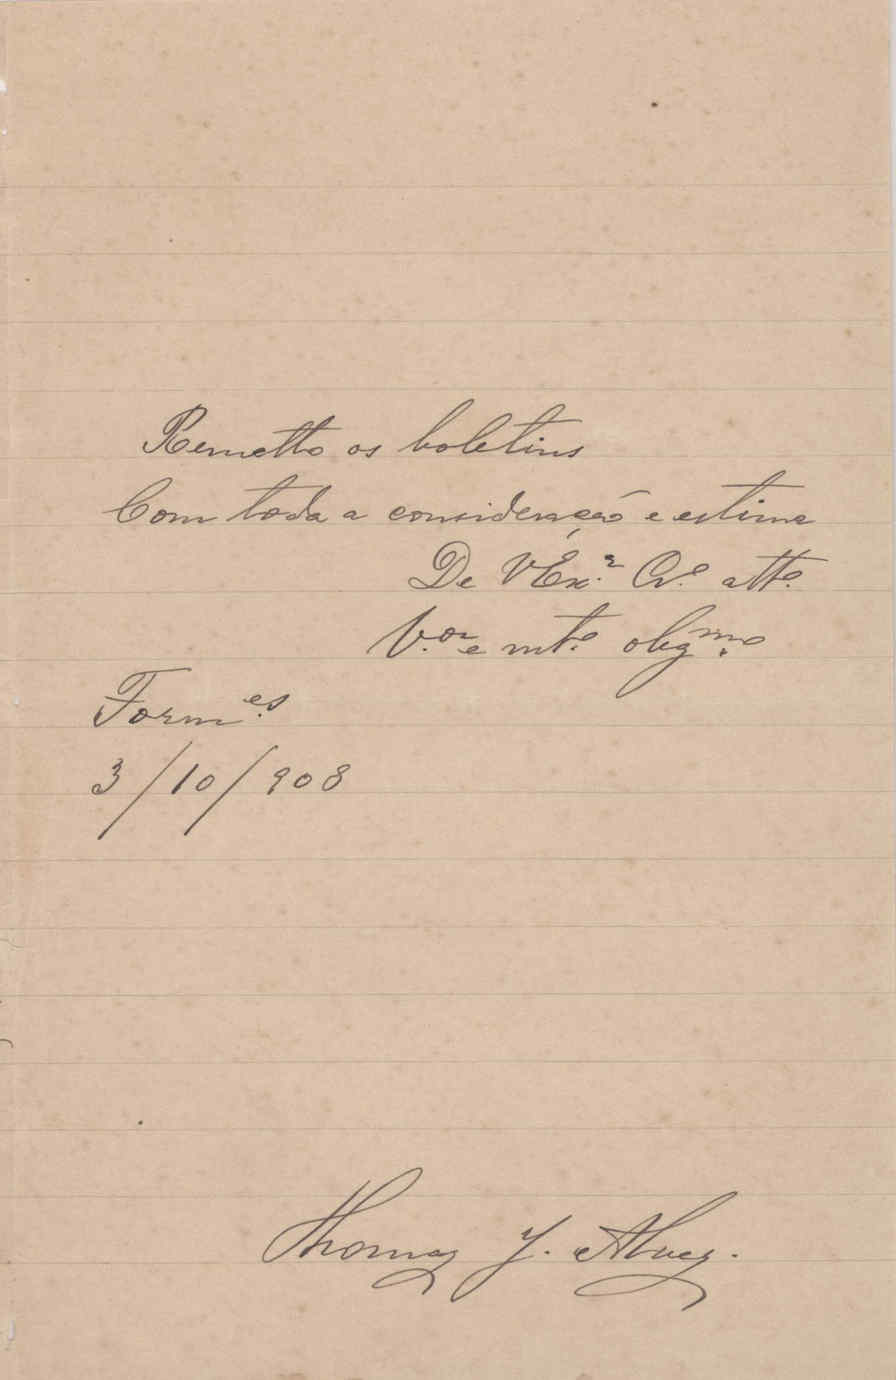 Remetto os boletins
Com toda a consideração e estima
De VExª. Cr.º att.º
V.or e mt.º obgmo.
Form.es
3/10/908
Thomaz J. Alvez.